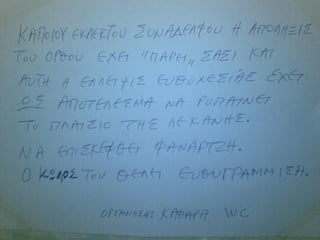 ΚΑΠΟΙΟΥ ΕΚΛΕΚΤΟΥ ΣΥΝΑΔΕΛΦΟΥ Η ΑΠΟΛΗΞΙΣ
ΤΟΥ ΟΡΘΟΥ ΕΧΕΙ "ΠΑΡΕΙ" ΣΑΣΙ ΚΑΙ
ΑΥΤΗ Η ΕΛΛΕΙΨΙΣ ΕΥΘΥΧΕΣΙΑΣ ΕΧΕΙ
ΩΣ ΑΠΟΤΕΛΕΣΜΑ ΝΑ ΡΥΠΑΙΝΕΙ
ΤΟ ΠΛΑΙΣΙΟ ΤΗΣ ΛΕΚΑΝΗΣ.
ΝΑ ΕΠΙΣΚΕΦΘΕΙ ΦΑΝΑΡΤΖΗ.
Ο ΚΩΛΟΣ ΤΟΥ ΘΕΛΕΙ ΕΥΘΥΓΡΑΜΜΙΣΗ.
ΟΡΓΑΝΩΣΗΣ ΚΑΘΑΡΑ WC